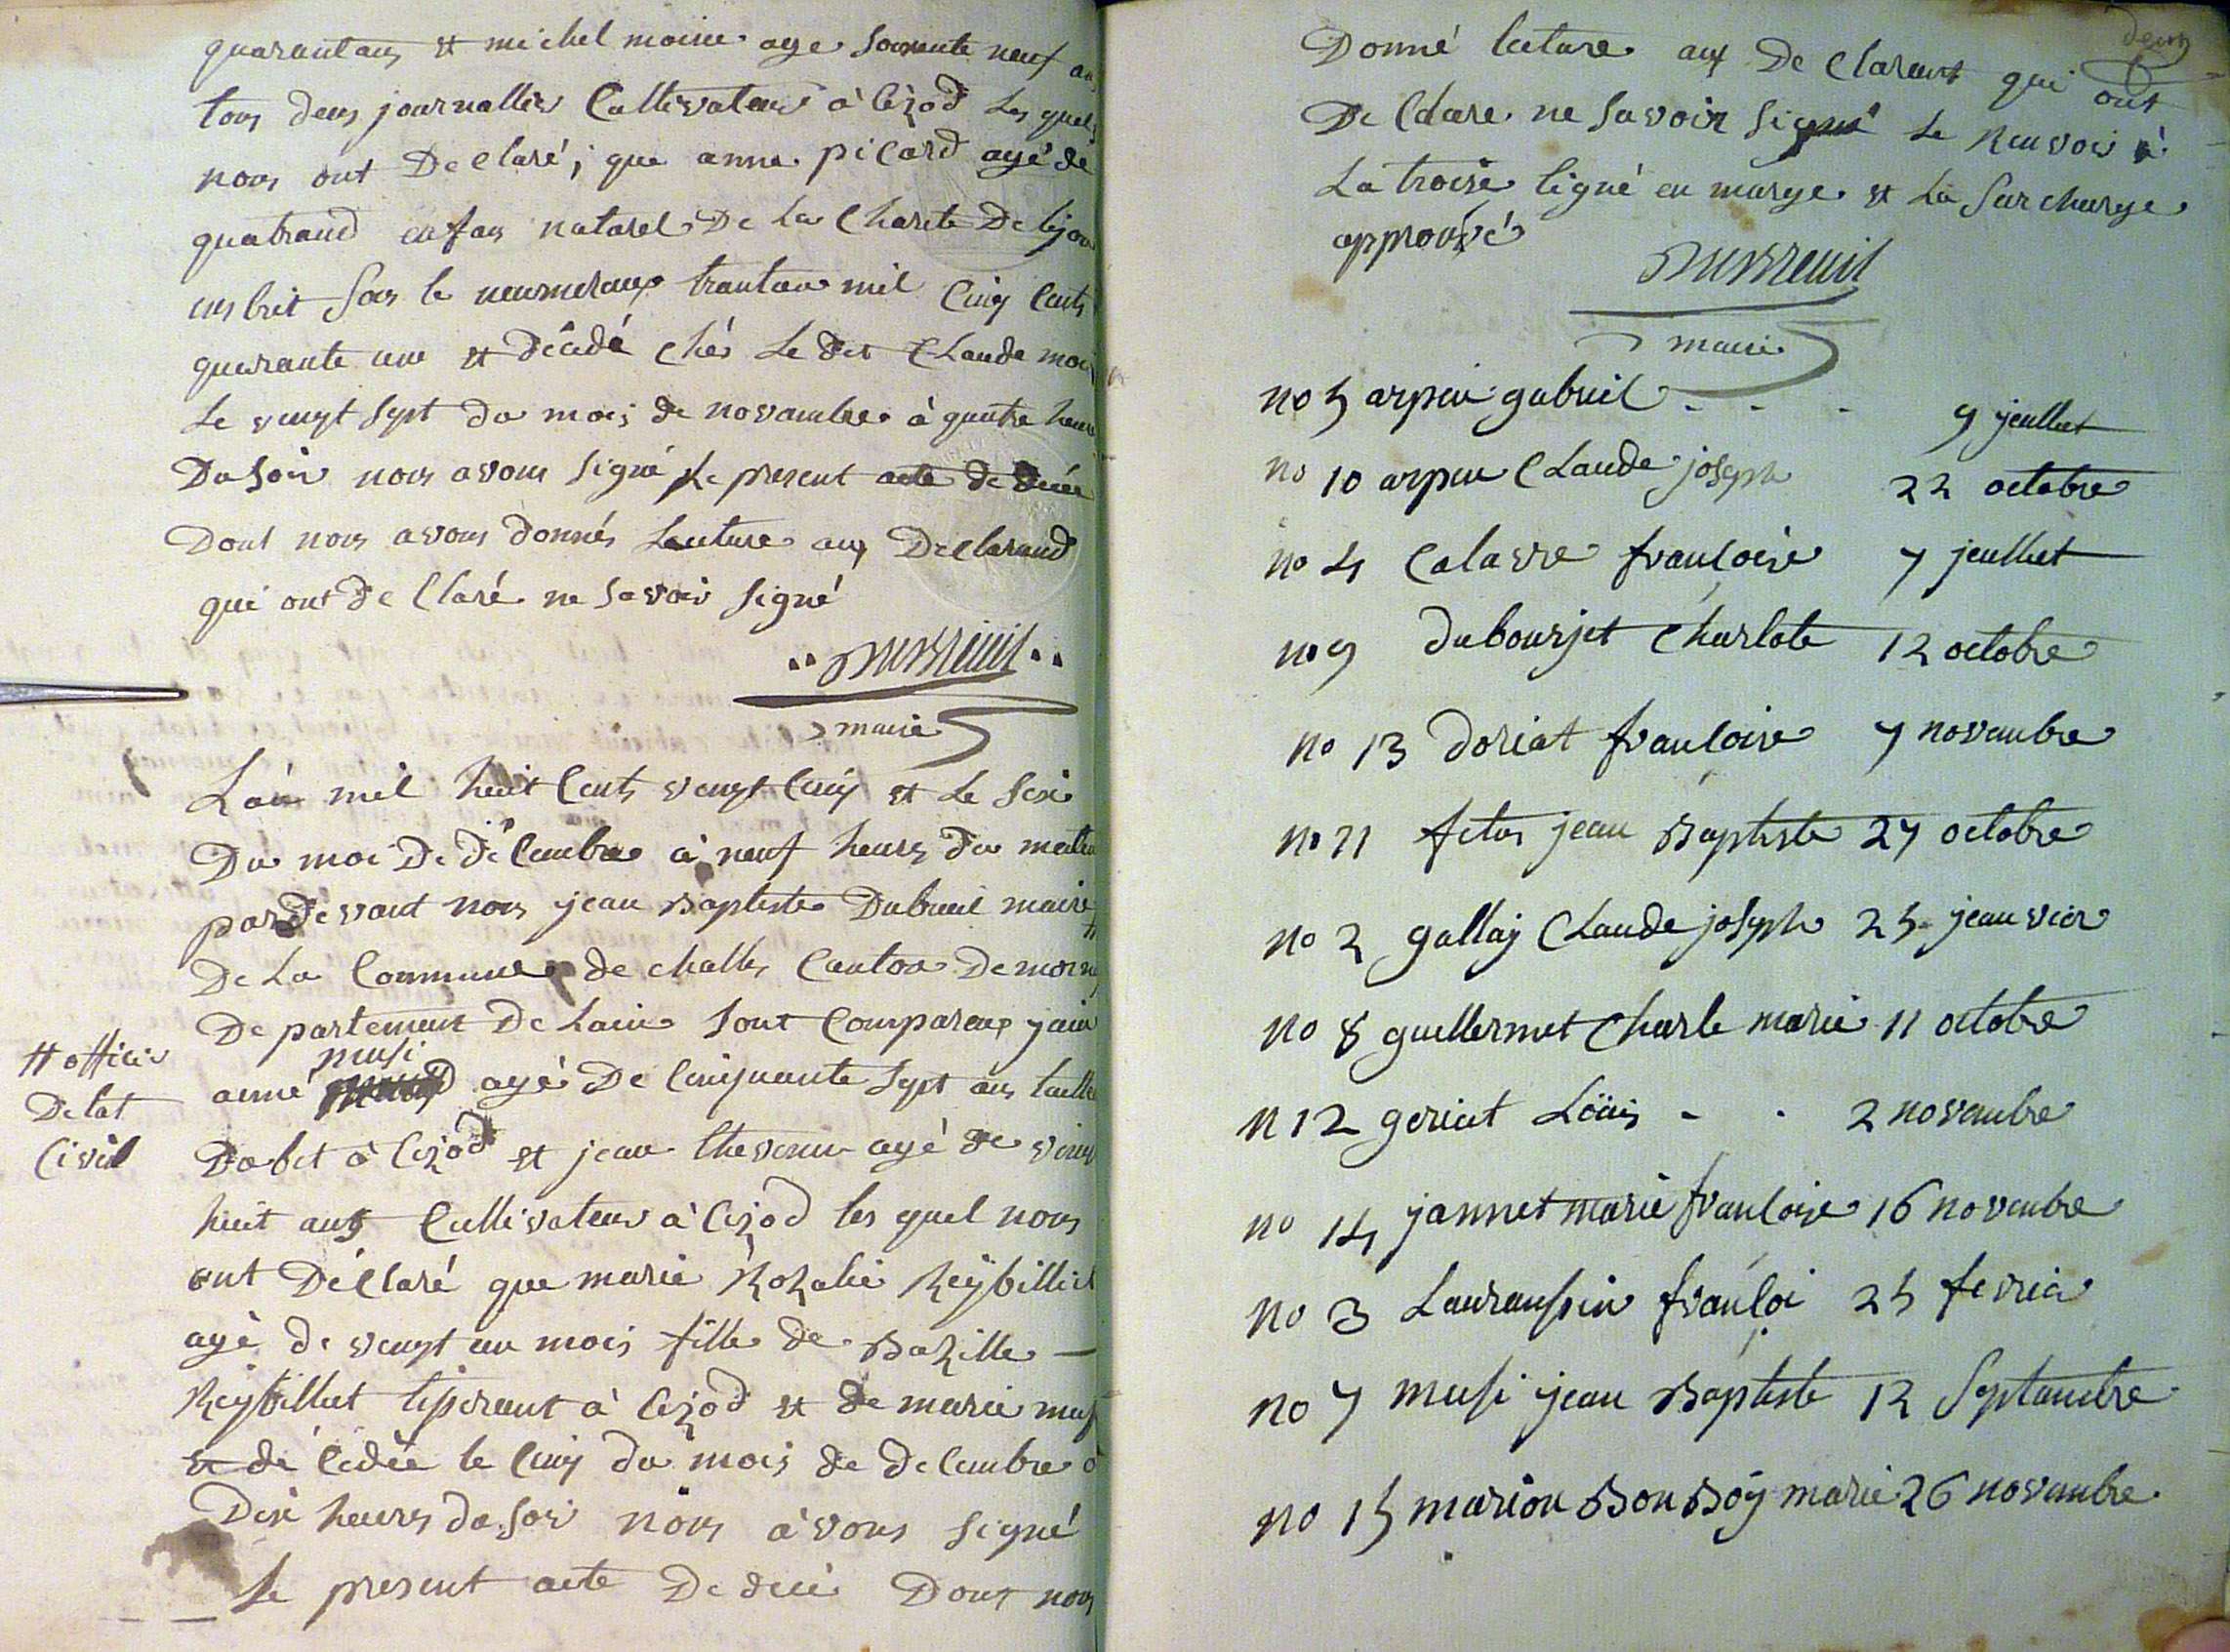 quarantans et michel moine age soixente neuf an
tous deus journallier Cultivateur à Cizod Les quels
nous ont Declaré, que anne picard agé de
quatrand enfan naturel De La Charite De lijon
inscrit Sous le neumeraux trantau mil Cinq Cents
quarante une et décédé chés Le dit CLaude moi
Le vengt Sept du mois de novambre à quatre heure
Du Soir nous avons Signé Le present acte de décés
Dont nous avons donnés Lecture aux Declarand
qui ont de Claré ne savoir Signé
Dubreuil
maire
L'an mil huit Cents vengt Cinq et Le Sixi
Du moi De déCembre à neuf heures du matin
pardevant nous jean Baptiste Dubreuil maire #
De La Commune de challes Canton De moin
Departement De Lain Sont Compareux jain
# officier
Delat
Civil
musi
aimé agé De Cinquante Sept ans taille
Dabit à Cizod et jean thevenin agé de vingt
huit ans Cultivateur à Cizod les quel nous
ont DéClaré que marie RoZalie Reybilliet
agé de vengt un mois fille de BaZille —
Reybilliet tiperant à Cizod et de marie mus
et dé Cédée le Cinq du mois de deCembre à
Dixe heures du Soir nous avons Signé
Le present acte De décé Dont nous
deux
Donné lecture aux De Clarant qui ont
De Cldare ne Savoir Signé Le Renvoi à
La troisie ligné en marge et La Surcharge
approuvé
Dubreuil
maire
no 5 arpin gabriel - - - 9 jeullet
no 10 arpin CLaude joseph 22 octobre
no 4 Calavre franCoise 7 jeullet
no 9 dubourjet Charlote 12 octobre
no 13 doriat franCoise 7 novanbre
no 11 fetas jean Baptiste 27 octobre
no 2 gallay CLaude joseph 25 jeanvier
no 8 guellermet Charle marie 11 octobre
n 12 geriat Loüis - - 2 novembre
no 14 jannet marie franCoise 16 novembre
no 3 Lauransin franCoi 25 fevrier
no 7 musi jean Baptiste 12 Septambre
no 15 marion BonBoÿ marie 26 novambre